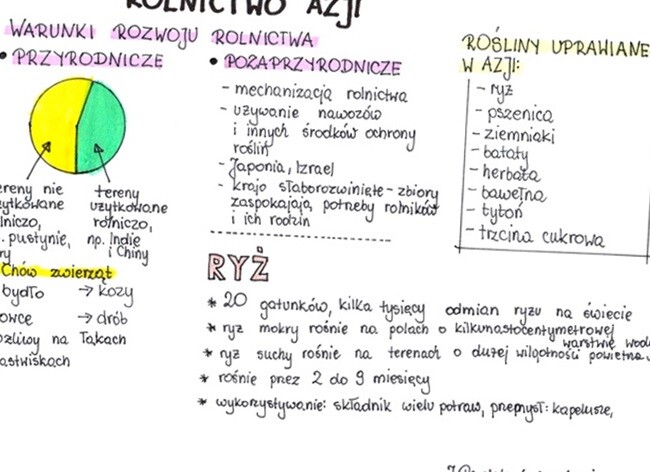 ROLNICTWO AZJI
WARUNKI ROZWOJU ROLNICTWA
• PRZYRODNICZE
tereny nie
użytkowane
rolniczo,
np. pustynie,
tereny
użytkowane
rolniczo,
np. Indie
i Chiny
Chów zwierząt
bydło → kozy
owce → drób
na łąkach
pastwiskach
• POZAPRZYRODNICZE
- mechanizacja rolnictwa
- używanie nawozów
i innych środków ochrony
roślin
- Japonia, Izrael
- kraje słaborozwinięte - zbiory
zaspokajają potrzeby rolników
i ich rodzin
ROŚLINY UPRAWIANE
W AZJI:
- ryż
- pszenica
- ziemniaki
- bataty
- herbata
- bawełna
- tytoń
- trzcina cukrowa
RYŻ
* 20 gatunków, kilka tysięcy odmian ryżu na świecie
* ryż mokry rośnie na polach o kilkunastocentymetrowej
warstwie wody
* ryż suchy rośnie na terenach o dużej wilgotności powietrza
* rośnie przez 2 do 9 miesięcy
* wykorzystywanie: składnik wielu potraw, przemysł: kapelusze,